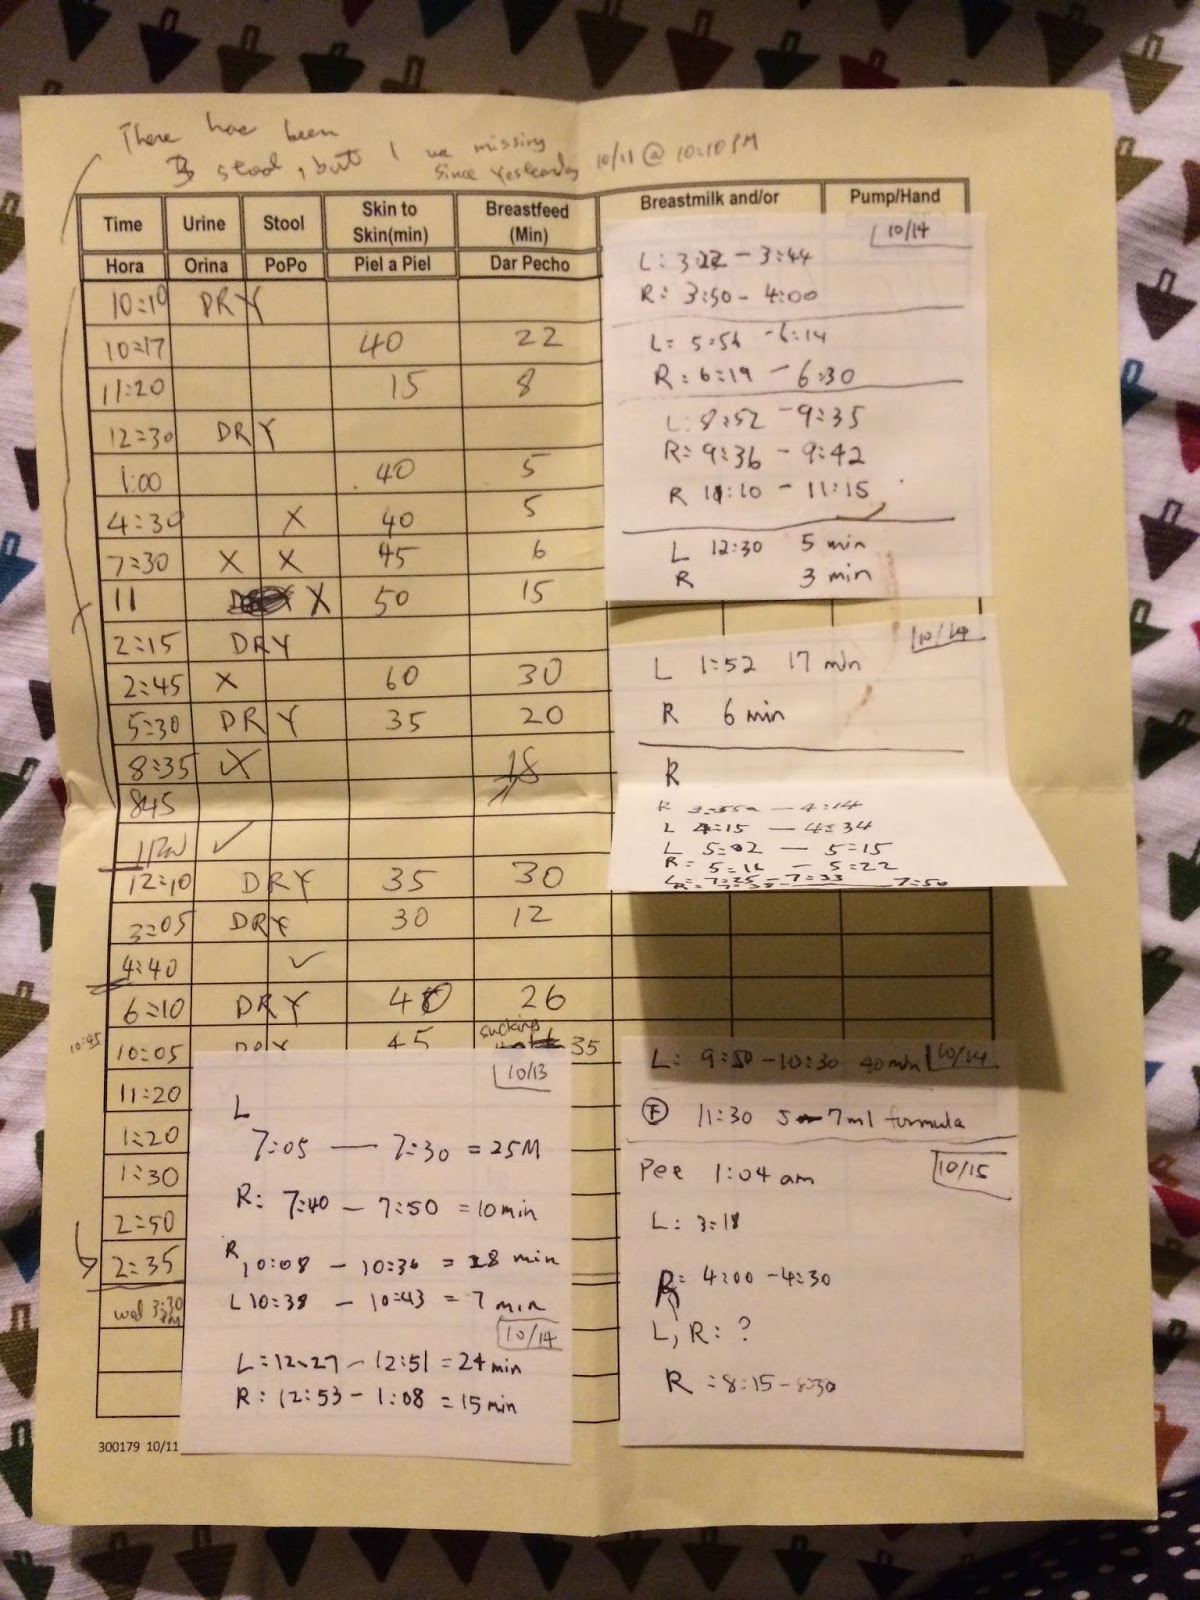 There has been
3 stool, but I
missing
since yesterday 10/11 @ 10:10 PM
Time Urine Stool Skin to Skin(min) Breastfeed (Min) Breastmilk and/or Pump/Hand
Hora Orina PoPo Piel a Piel Dar Pecho
10:10 DRY
10:17 40 22
11:20 15 8
12:30 DRY
1:00 40 5
4:30 X 40 5
7:30 X X 45 6
11 X 50 15
2:15 DRY
2:45 X 60 30
5:30 DRY 35 20
8:35 X 18
845
✓
12:10 DRY 35 30
3:05 DRY 30 12
4:40 ✓
6:10 DRY 40 26
10:45 10:05 DRY 45 sucking 35
11:20
1:20
1:30
2:50
2:35
wed 3:30 PM
300179 10/11
10/14
L: 3:22 - 3:44
R: 3:50 - 4:00
L: 5:56 - 6:14
R: 6:19 - 6:30
L: 8:52 - 9:35
R: 9:36 - 9:42
R 11:10 - 11:15
L 12:30 5 min
R 3 min
10/14
L 1:52 17 min
R 6 min
R
R 3:55 - 4:14
L 4:15 - 4:34
L 5:02 - 5:15
R: 5:16 - 5:22
L: 7:25 - 7:33
R: 7:50
10/13
L
7:05 - 7:30 = 25M
R: 7:40 - 7:50 = 10min
R 10:08 - 10:36 = 28 min
L 10:38 - 10:43 = 7 min
10/14
L: 12:27 - 12:51 = 24 min
R: 12:53 - 1:08 = 15min
L: 9:50 - 10:30 40min 10/14
F 11:30 5 7ml formula
Pee 1:04 am 10/15
L: 3:18
R: 4:00 - 4:30
L, R: ?
R: 8:15 - 8:30